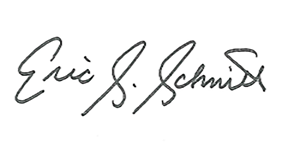 Eric S. Schmitt